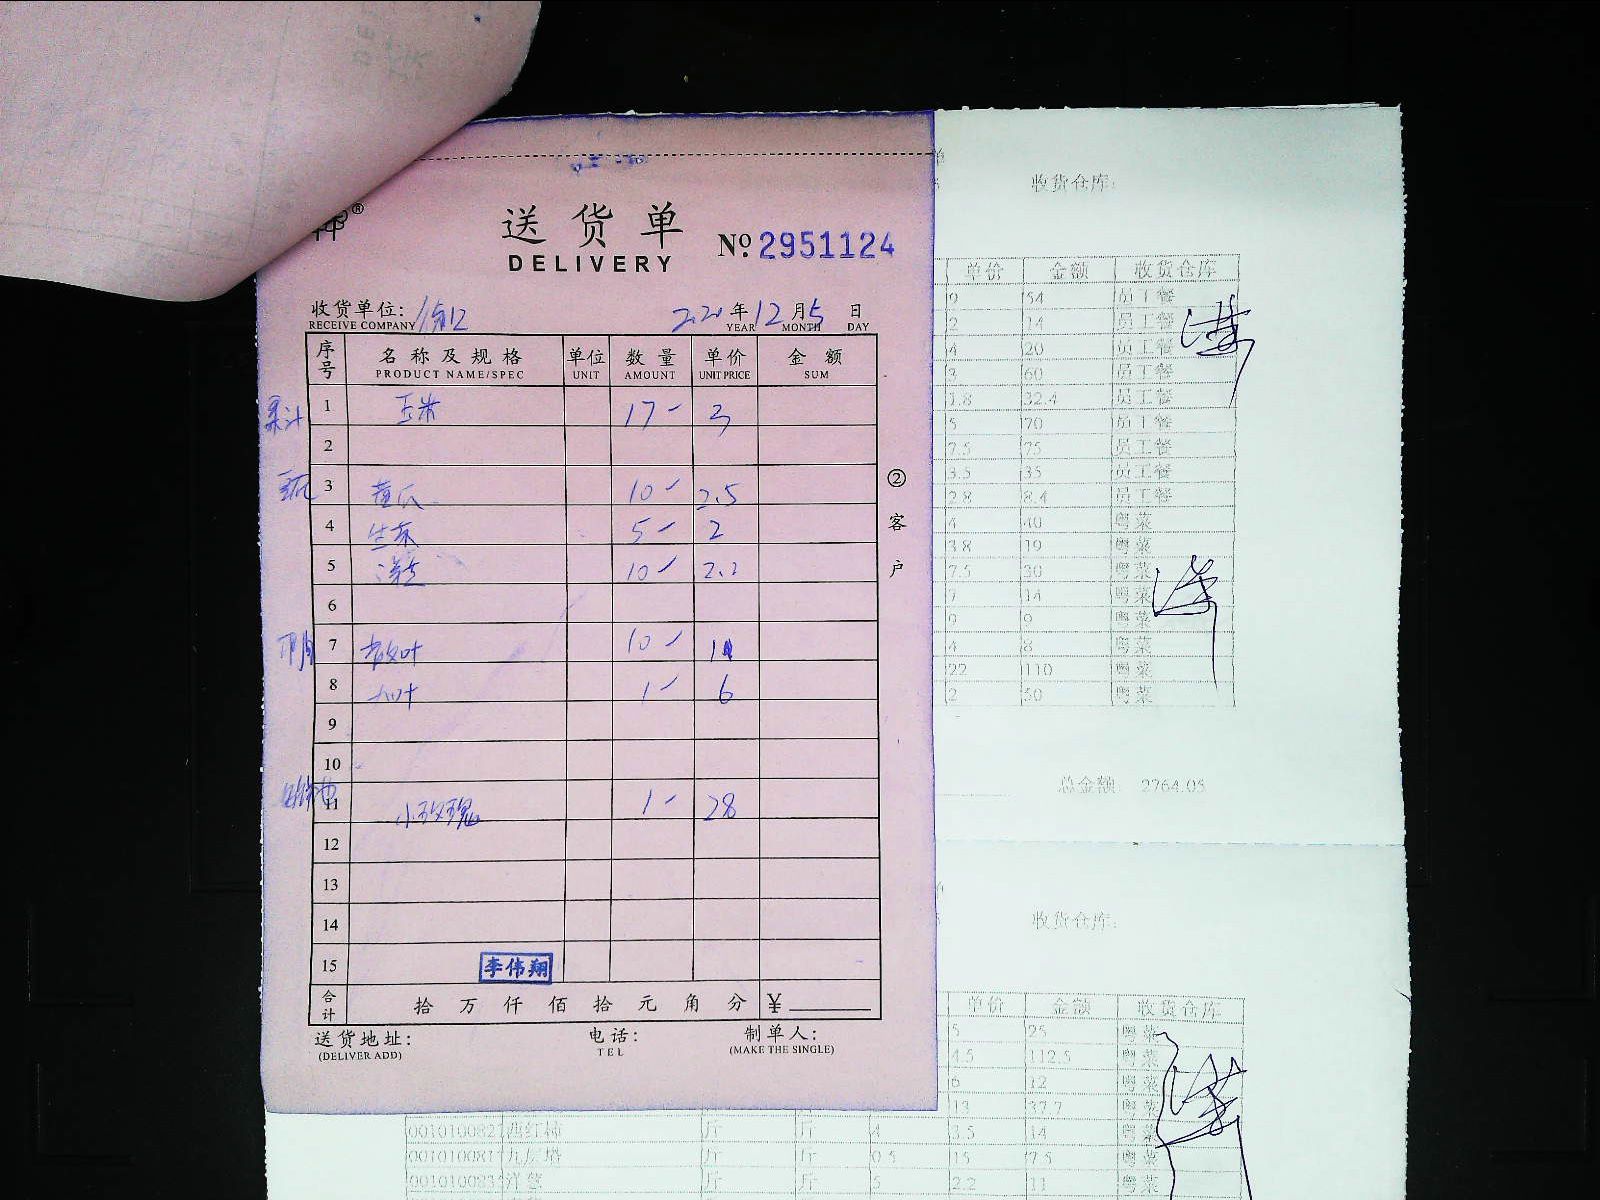 单
收货仓库:
送货单
DELIVERY
№ 2951124
收货单位:
RECEIVE COMPANY
2020年12月5日
YEAR MONTH DAY
序号 名称及规格 单位 数量 单价 金额
PRODUCT NAME/SPEC UNIT AMOUNT UNIT PRICE SUM
1 玉米 17 3
2
3 黄瓜 10 2.5
4 生菜 5 2
5 10 2.2
6
7 10
8 1 6
9
10
11 小玫瑰 1 28
12
13
14
15 李伟翔
合计 拾万仟佰拾元角分 ¥
送货地址: 电话: 制单人:
(DELIVER ADD) TEL (MAKE THE SINGLE)
②客户
单价 金额 收货仓库
9 54 员工餐
2 14 员工餐
4 20 员工餐
3 60 员工餐
1.8 32.4 员工餐
5 70 员工餐
7.5 75 员工餐
3.5 35 员工餐
2.8 8.4 员工餐
4 40 粤菜
3.8 19 粤菜
7.5 30 粤菜
7 14 粤菜
9 9 粤菜
4 8 粤菜
22 110 粤菜
2 50 粤菜
总金额: 2764.05
收货仓库:
单价 金额 收货仓库
5 25 粤菜
4.5 112.5 粤菜
6 12 粤菜
13 37.7 粤菜
0010100827 西红柿 斤 斤 4 3.5 14 粤菜
0010100817 九层塔 斤 斤 0.5 15 7.5 粤菜
0010100835 洋葱 斤 斤 5 2.2 11 粤菜